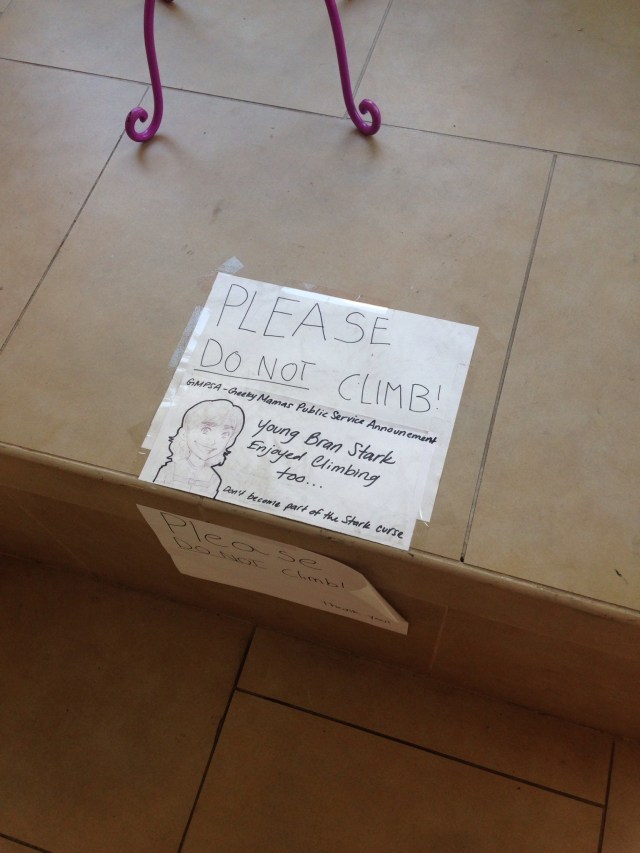 PLEASE
DO NOT CLIMB!
GMPSA - Cheeky Mamas Public Service Announement
Young Bran Stark
Enjoyed Climbing
too...
Don't become part of the Stark curse
Please
Do NOT Climb!
Thank you!